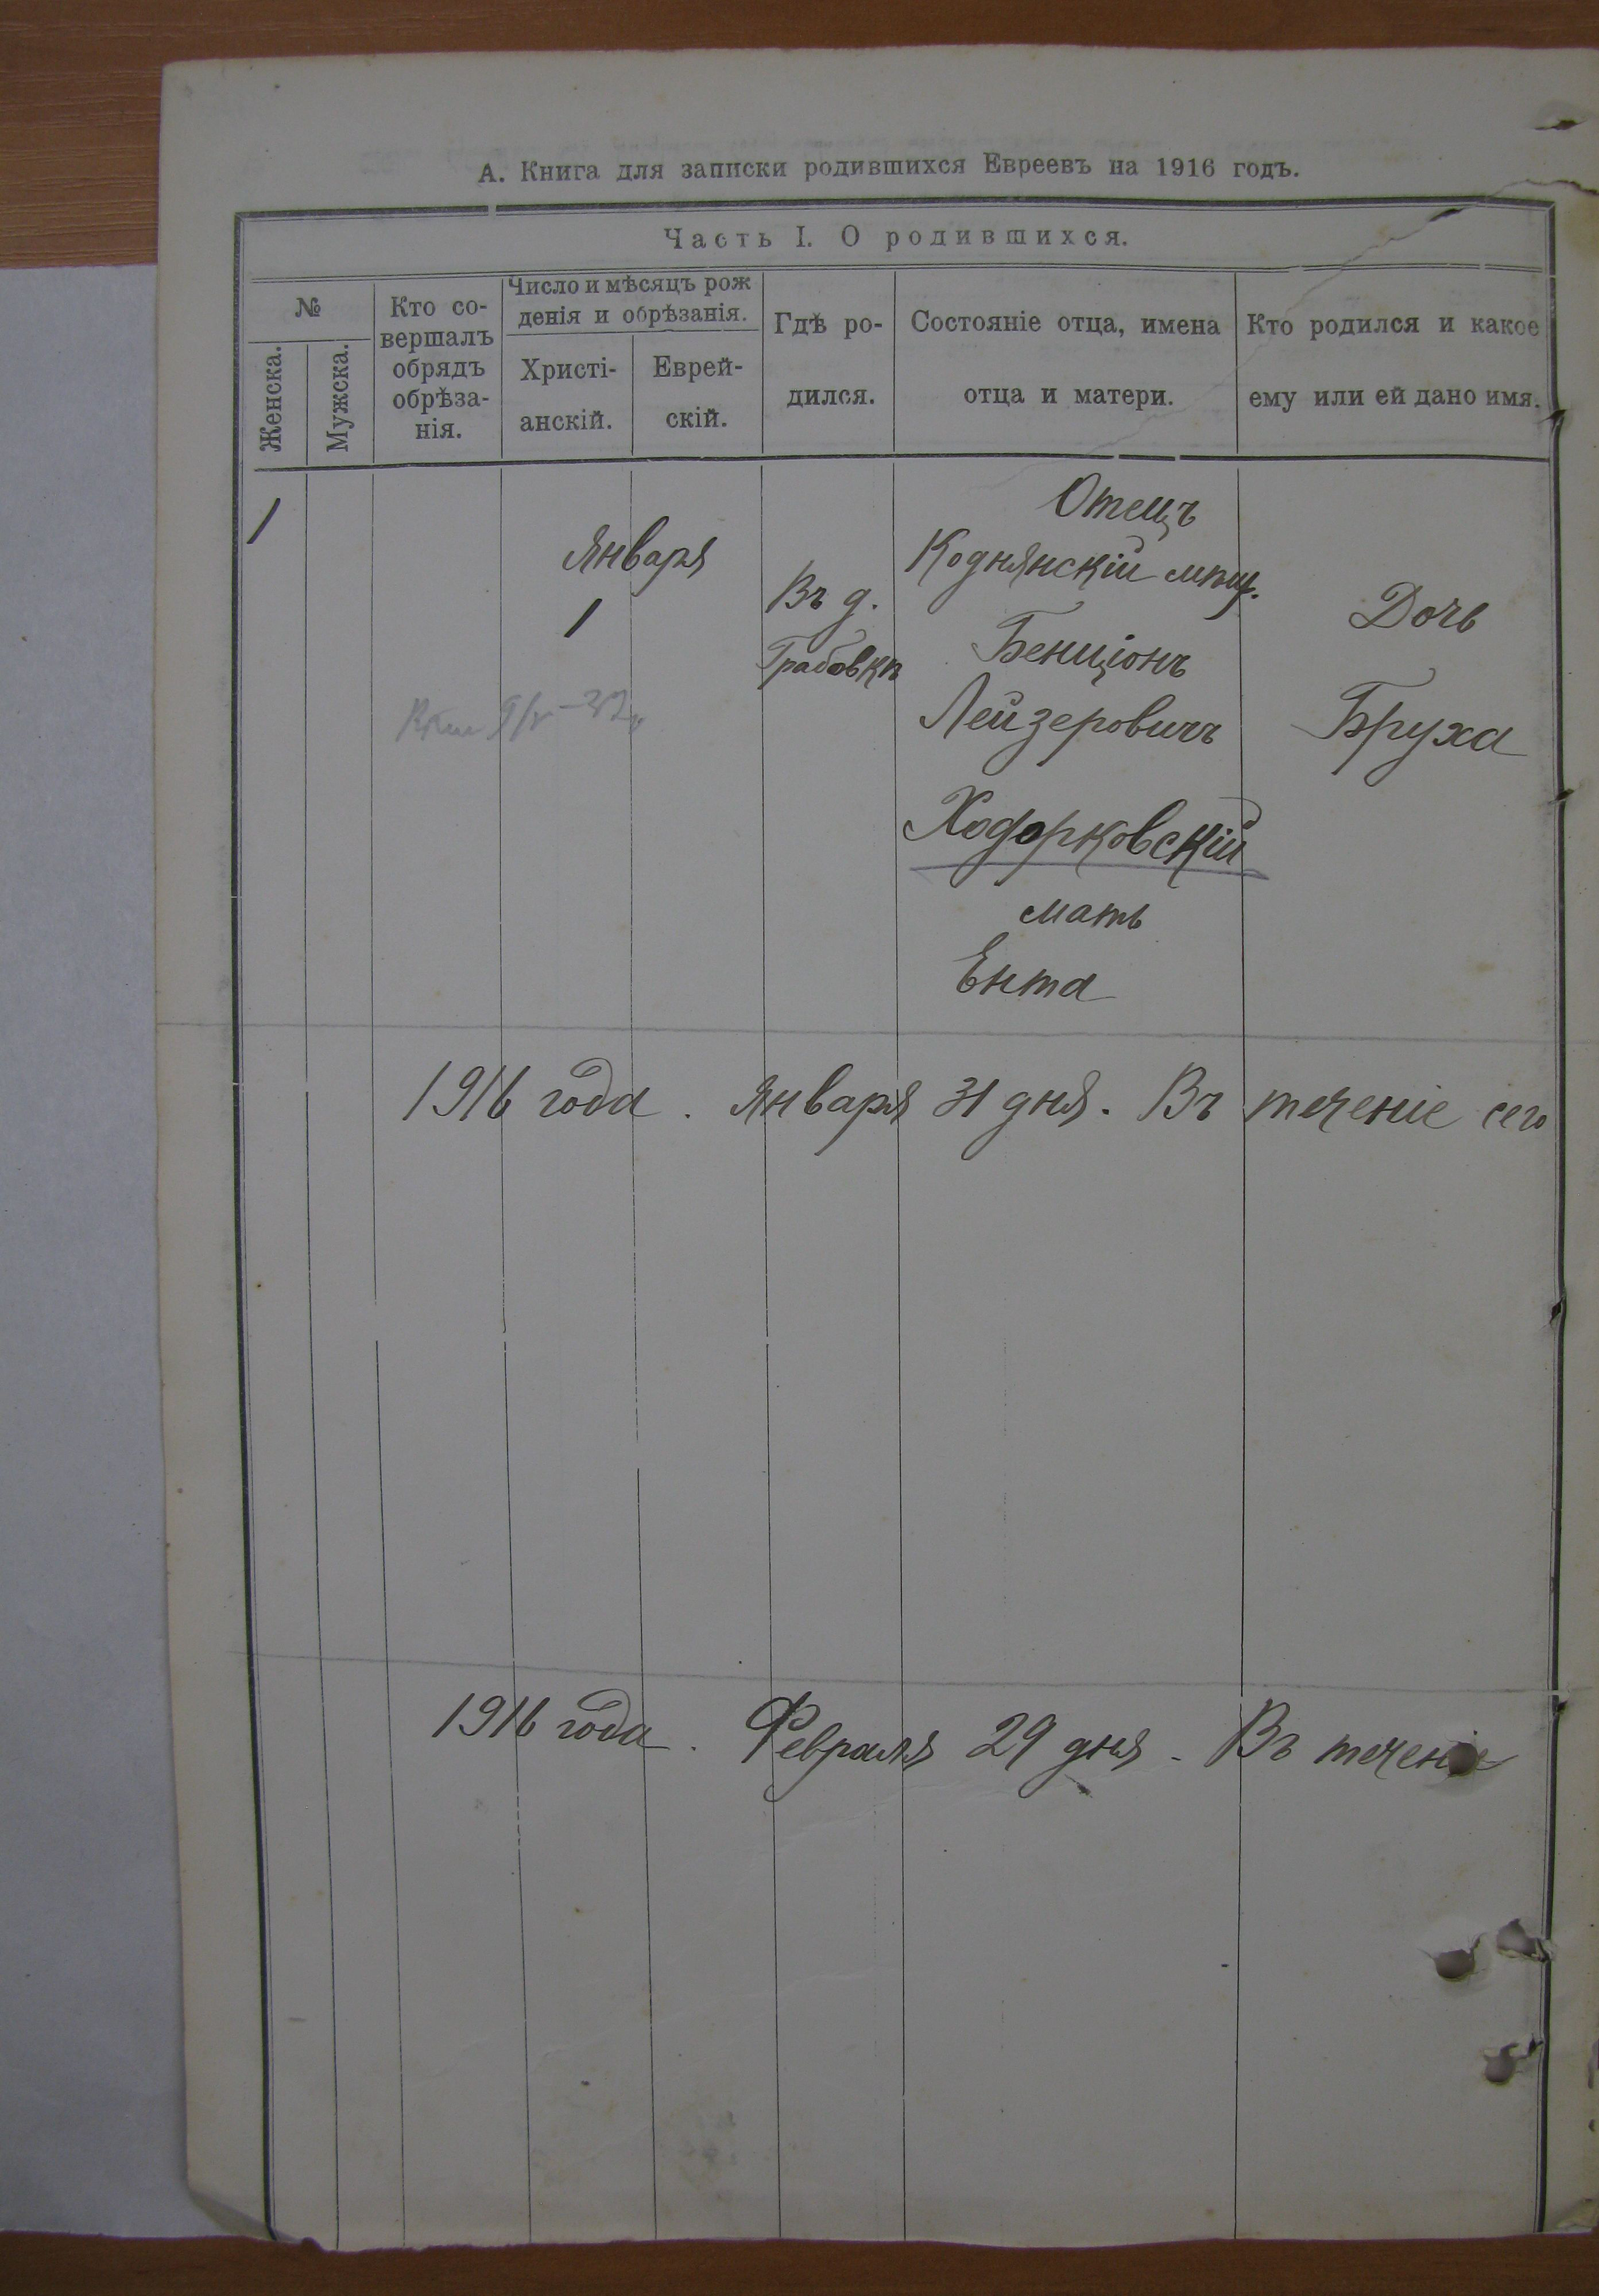 А. Книга для записки родившихся Евреевъ на 1916 годъ.
Часть I. О родившихся.
№
Женска.
Мужска.
Кто со-
вершалъ
обрядъ
обрѣза-
нія.
Число и мѣсяцъ рож
денія и обрѣзанія.
Христі-
анскій.
Еврей-
скій.
Гдѣ ро-
дился.
Состояніе отца, имена
отца и матери.
Кто родился и какое
ему или ей дано имя.
1
Января
1
Въ д.
Грабовкѣ
Отецъ
Коднянскій мѣщ.
Бенціонъ
Лейзеровичъ
Ходорковскій
мать
Ента
Дочь
Бруха
1916 года. Января 31 дня. Въ теченіе сего
1916 года. Февраля 29 дня. Въ теченіе